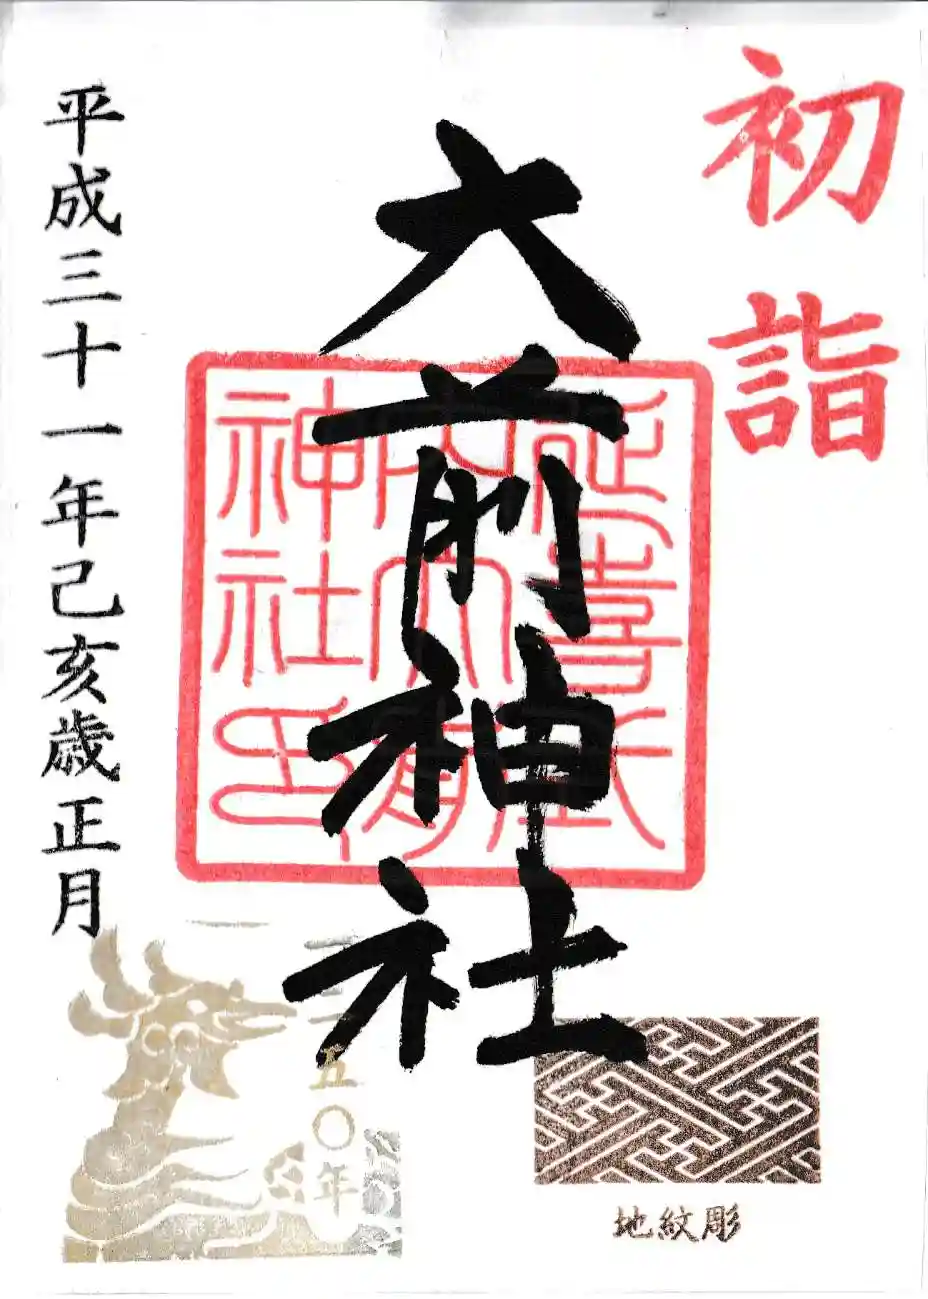 初詣
大前神社
延喜式
内大前
神社印
平成三十一年己亥歳正月
一二五〇年
地紋彫